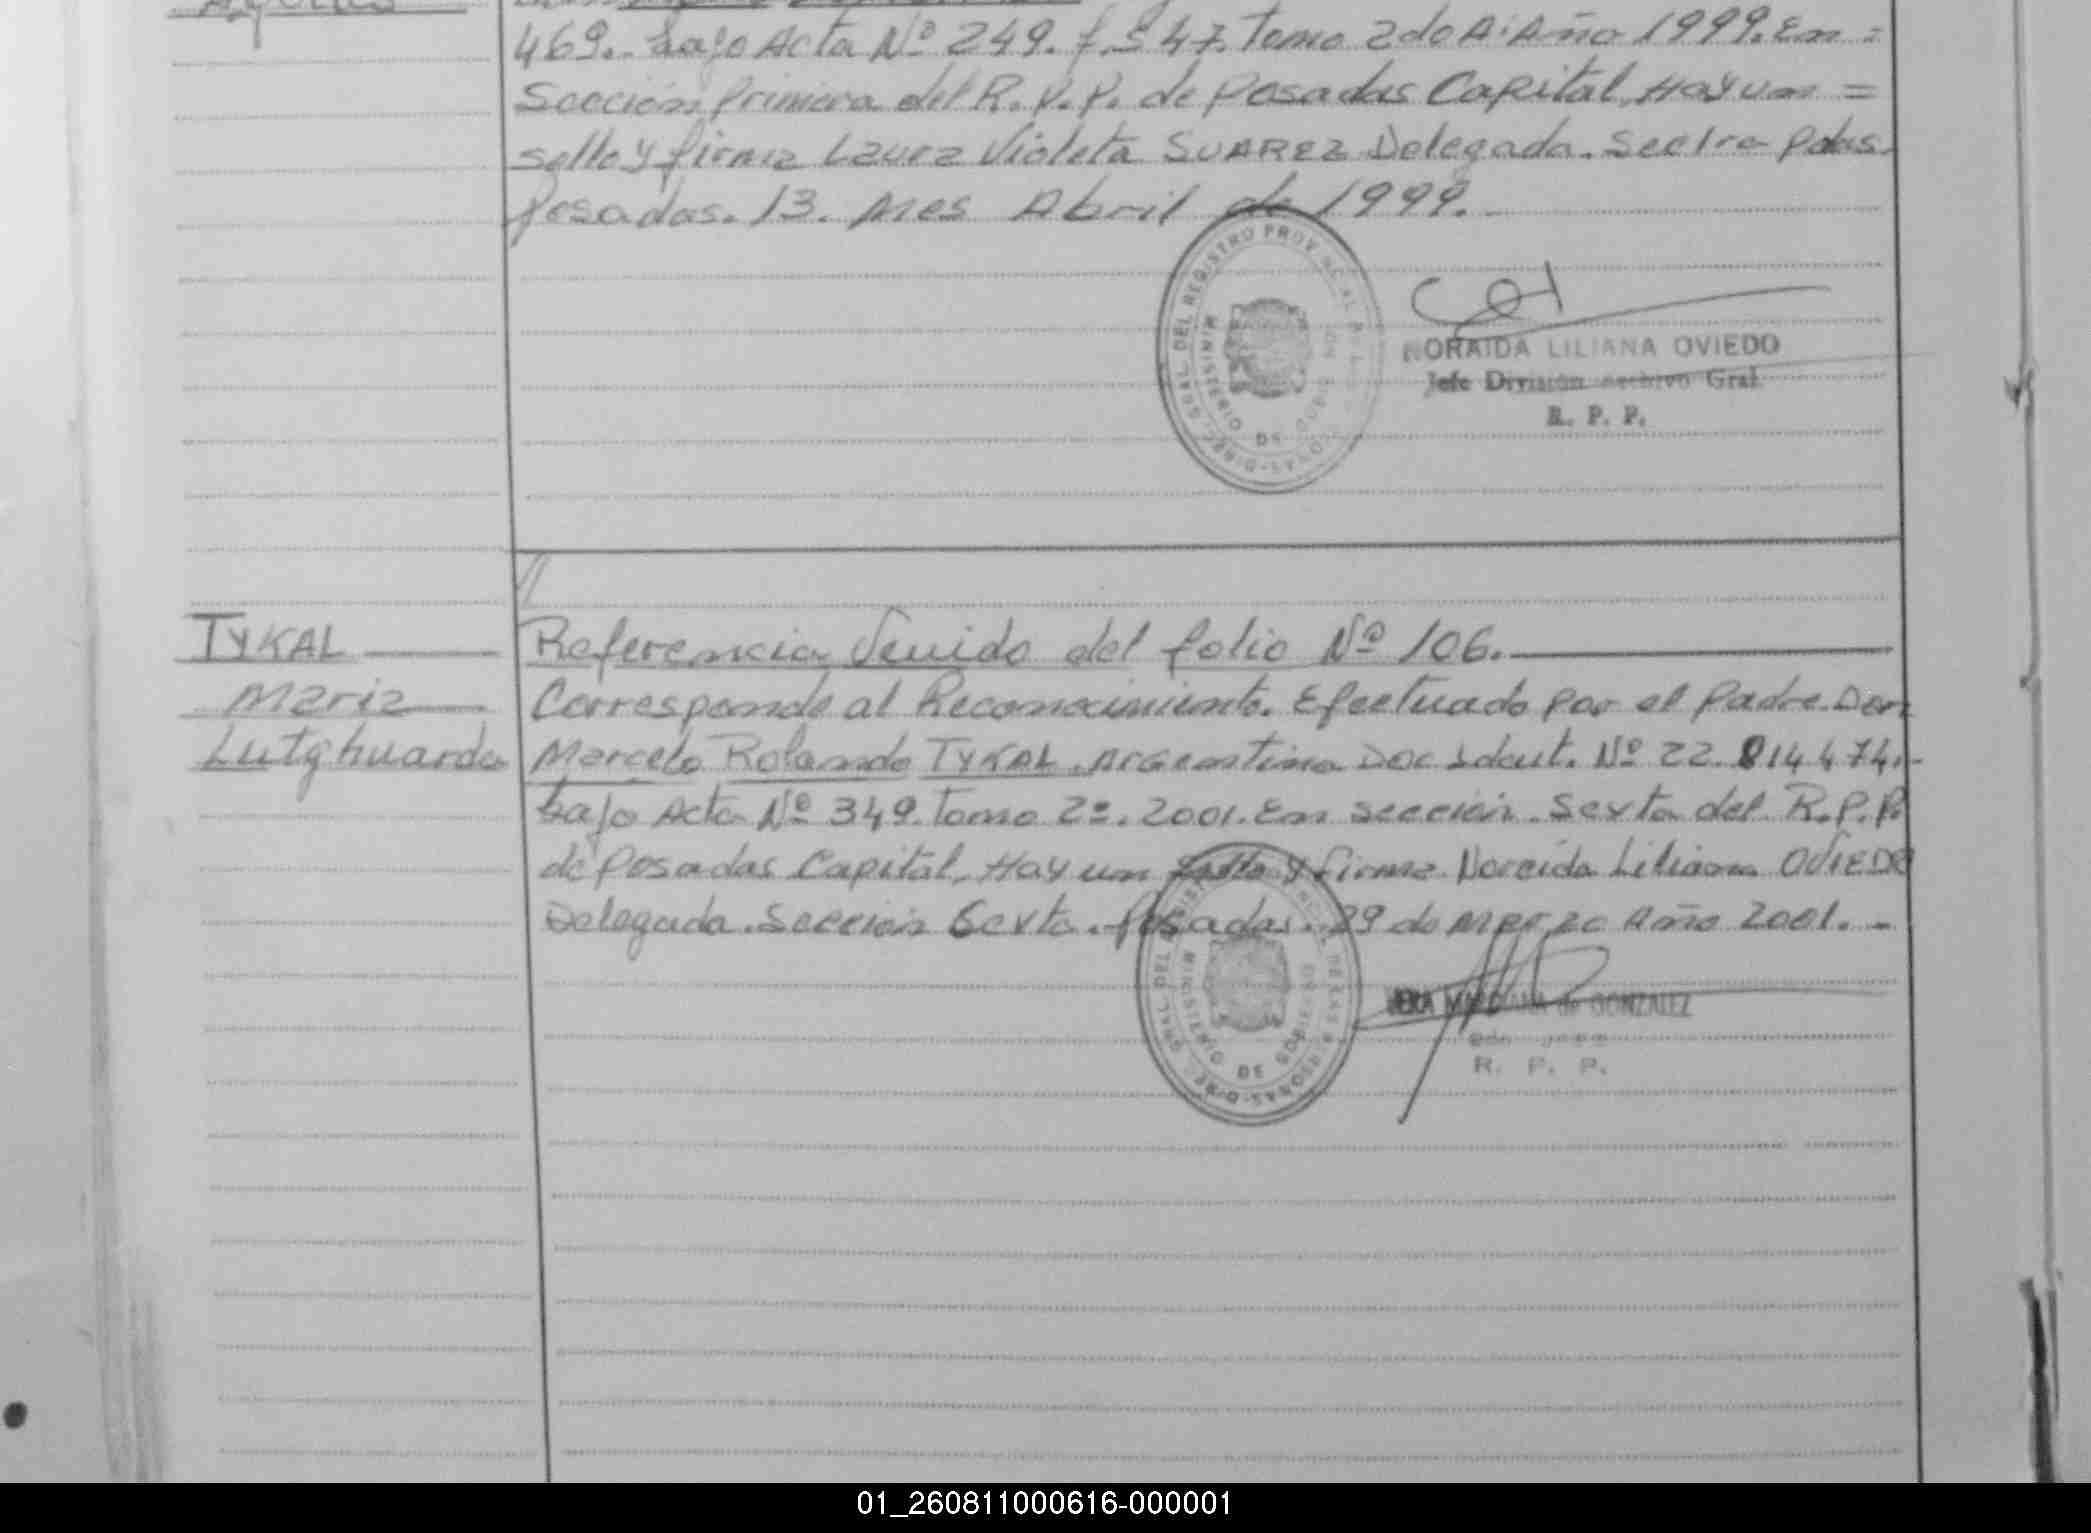 469.- bajo Acta Nº 249. fs 47. Tomo 2do A. Año 1999. En =
Sección Primera del R.P.P. de Posadas Capital, Hay un =
sello y firma Laura Violeta SUAREZ Delegada. Sec 1ra Pdas.
Posadas. 13. Mes Abril de 1999.
DIREC. GRAL. DEL REGISTRO PROVINCIAL DE LAS PERSONAS
MINISTERIO DE GOBIERNO
NORAIDA LILIANA OVIEDO
Jefe División Archivo Gral.
R. P. P.
TYKAL
Maria
Lutghuarda
Referencia Venido del folio Nº 106.
Corresponde al Reconocimiento. Efectuado por el Padre. Don
Marcelo Rolando TYKAL. Argentino Doc Ident. Nº 22.814474.-
bajo Acta Nº 349. Tomo 2º. 2001. En sección. Sexta del R.P.P.
de Posadas Capital, Hay un sello y firma Noraida Liliana OVIEDO
Delegada. Sección Sexta. Posadas. 29 de Marzo Año 2001. -
DIREC. GRAL. DEL REGISTRO PROVINCIAL DE LAS PERSONAS
MINISTERIO DE GOBIERNO
de GONZALEZ
R. P. P.
01_260811000616-000001